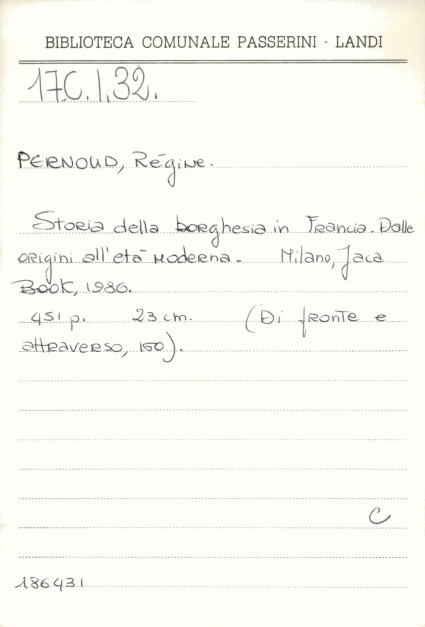 BIBLIOTECA COMUNALE PASSERINI - LANDI
17C.I.32.
PERNOUD, Régine.
Storia della borghesia in Francia. Dalle
origini all'età moderna. - Milano, Jaca
Book, 1986.
451 p. 23 cm. (Di fronte e
attraverso, 150).
C
186431